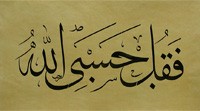 فَقُلْ حَسْبِيَ اللَّهُ